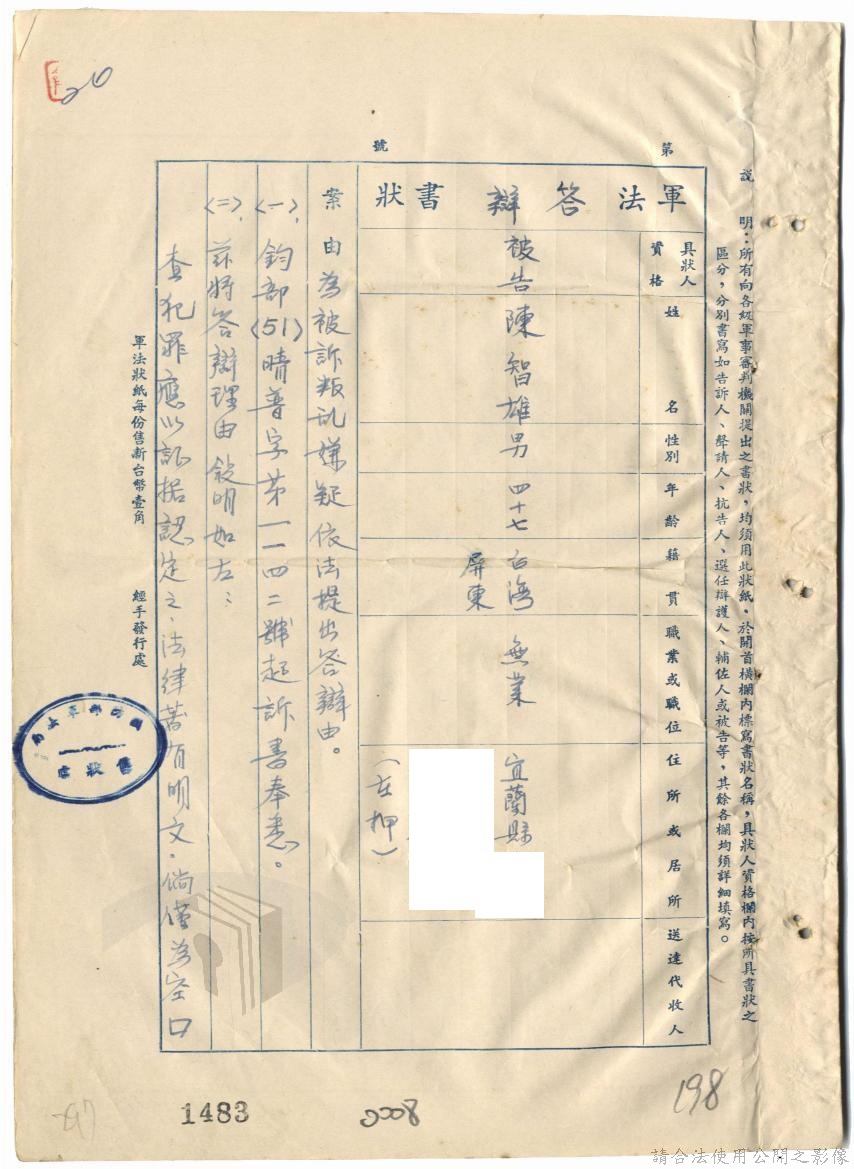 說明：所有向各級軍事審判機關提出之書狀，均須用此狀紙，於開首橫欄內標寫書狀名稱，具狀人資格欄內按所具書狀之
區分，分別書寫如告訴人、聲請人、抗告人、選任辯護人、輔佐人或被告等，其餘各欄均須詳細填寫。
第 號
軍法答辯書狀
具狀人資格
姓名
性別
年齡
籍貫
職業或職位
住所或居所
送達代收人
被告
陳智雄
男
四十七
台灣
屏東
無業
宜蘭縣
（在押）
案由為被訴叛乱嫌疑依法提出答辯由。
〈一〉、鈞部〈51〉晴普字第一一四二號起訴書奉悉。
〈二〉、茲將答辯理由敘明如左：
查犯罪應以証据認定之，法律著有明文，倘僅為空口
軍法狀紙每份售新台幣壹角 經手發行處
售狀處
20
198
2008
1483
請合法使用公開之影像